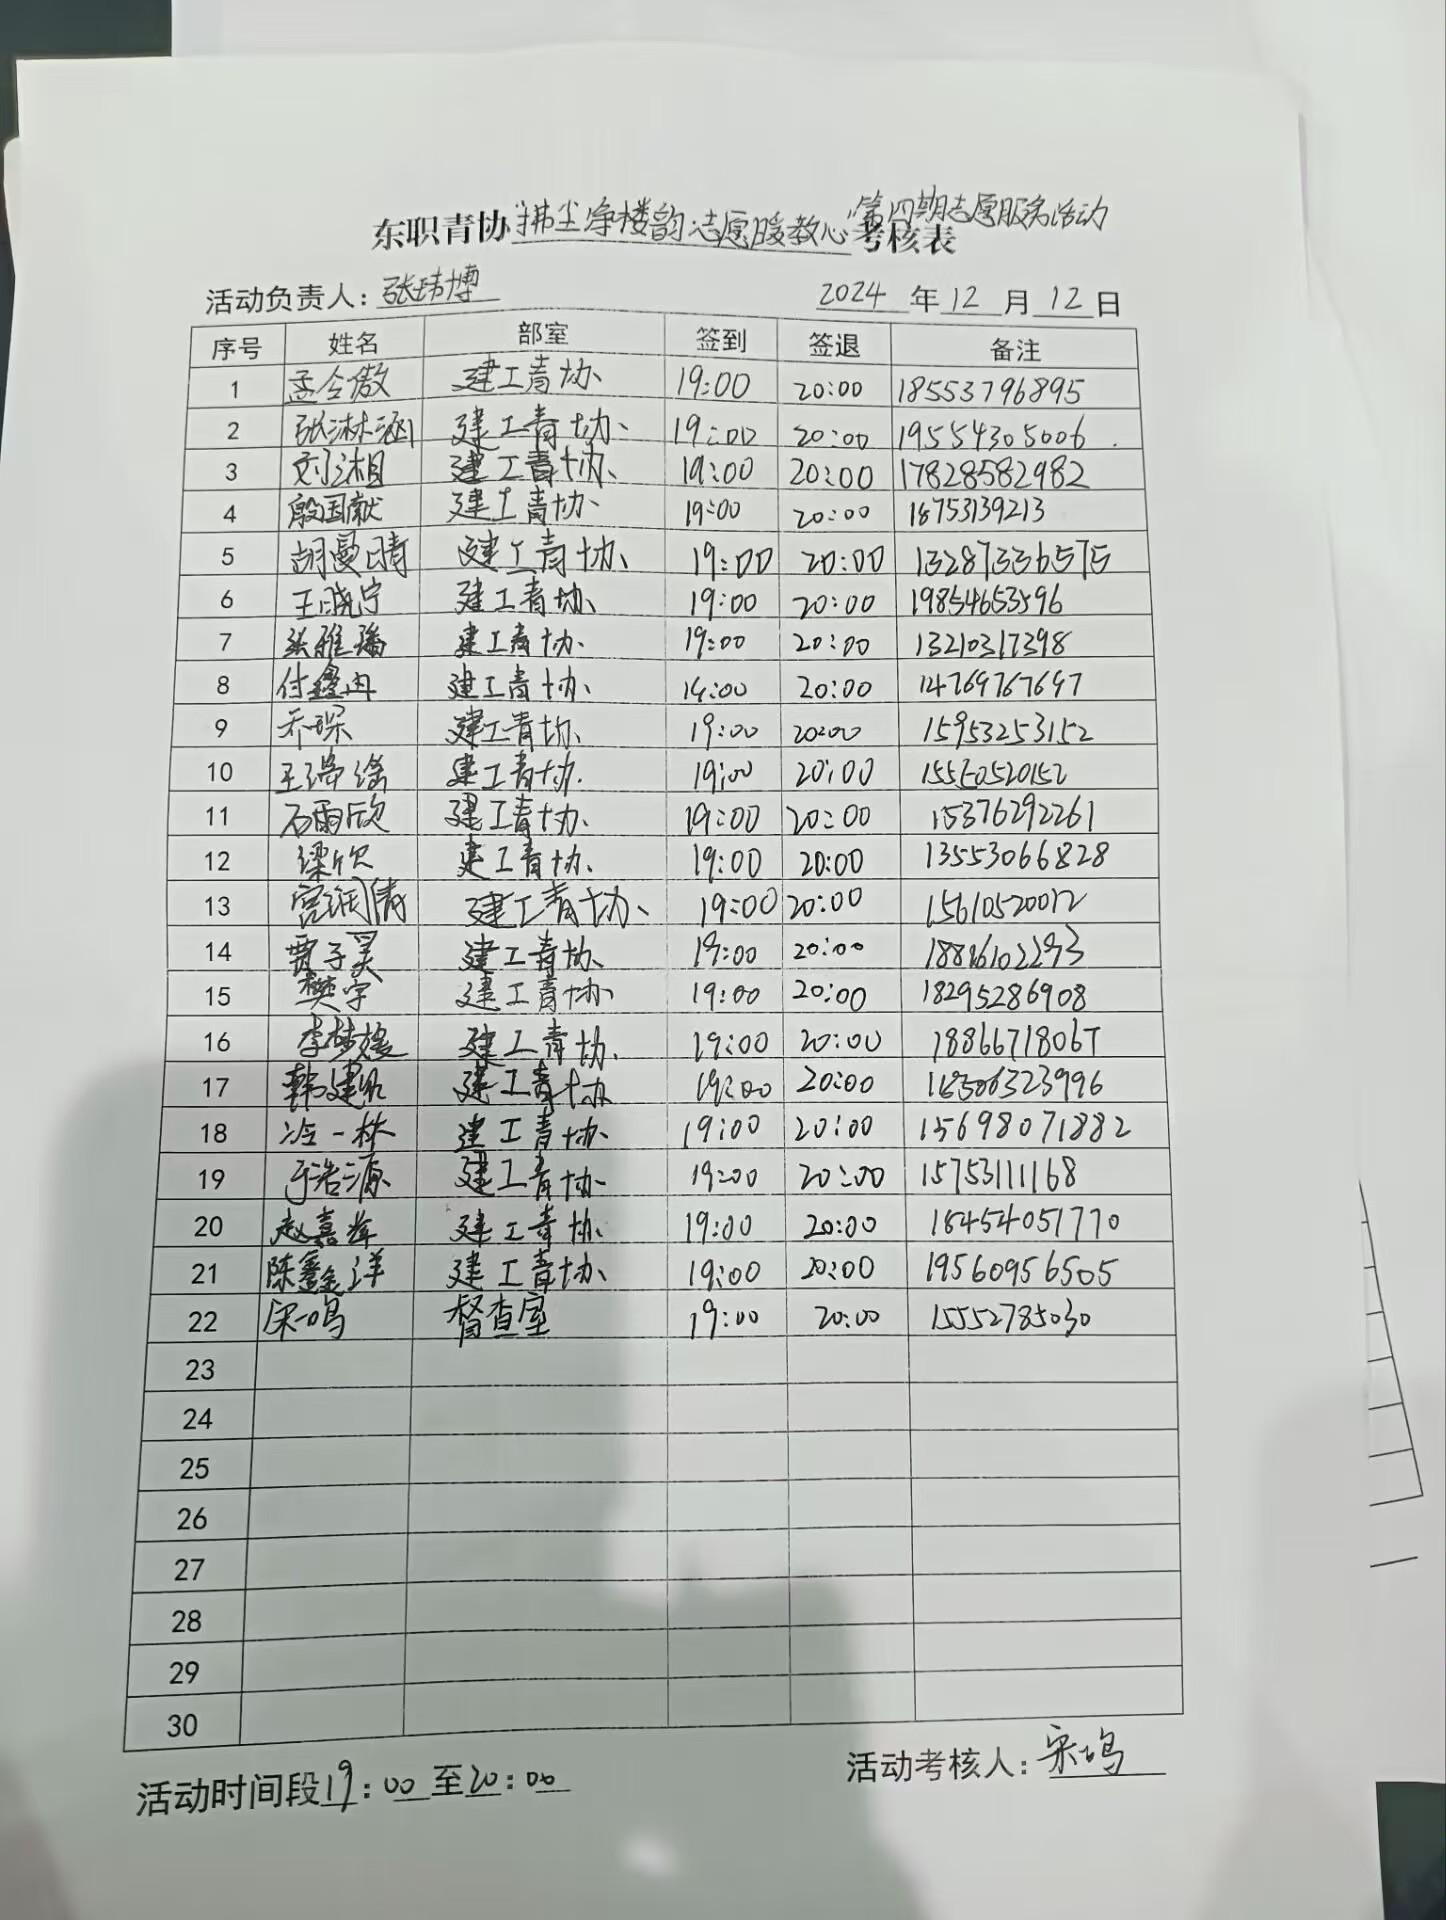 第四期志愿服务活动
东职青协"拂尘净楼韵,志愿暖教心"考核表
活动负责人：张玮博 2024 年 12 月 12 日
序号 姓名 部室 签到 签退 备注
1 孟令傲 建工青协 19:00 20:00 18553796895
2 张淋涵 建工青协 19:00 20:00 19554305006
3 刘湘 建工青协 19:00 20:00 17828582982
4 殷国献 建工青协 19:00 20:00 18753139213
5 胡曼晴 建工青协 19:00 20:00 13287336575
6 王晓宁 建工青协 19:00 20:00 19854653596
7 张雅璠 建工青协 19:00 20:00 13210317398
8 付鑫冉 建工青协 19:00 20:00 14769767697
9 乔琛 建工青协 19:00 20:00 15953253152
10 王瑞涂 建工青协 19:00 20:00 15550520152
11 石雨欣 建工青协 19:00 20:00 15376292261
12 梁欣 建工青协 19:00 20:00 13553066828
13 宫润倩 建工青协 19:00 20:00 15610520012
14 贾子昊 建工青协 19:00 20:00 18816102293
15 樊宇 建工青协 19:00 20:00 18295286908
16 李梦媛 建工青协 19:00 20:00 18866718067
17 韩建 建工青协 19:00 20:00 18506323996
18 冷一林 建工青协 19:00 20:00 15698071882
19 于浩源 建工青协 19:00 20:00 15753111168
20 赵嘉辉 建工青协 19:00 20:00 18454051770
21 陈鑫洋 建工青协 19:00 20:00 19560956505
22 宋鸣 督查室 19:00 20:00 15552785030
23
24
25
26
27
28
29
30
活动时间段19：00至20：00 活动考核人：宋鸣